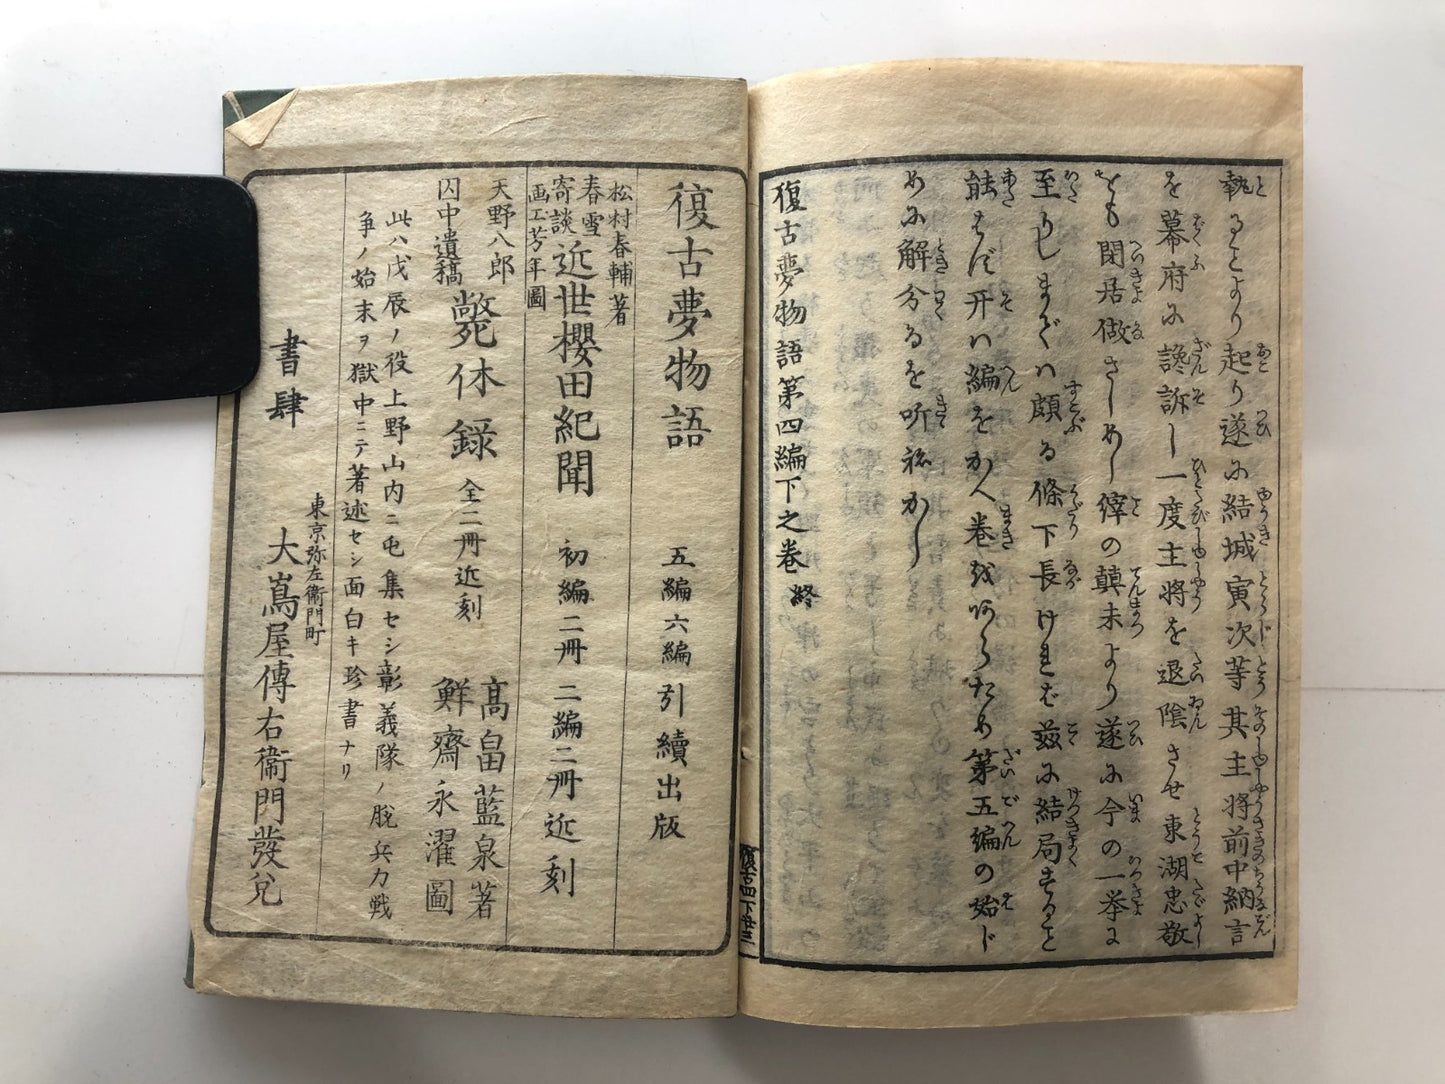 執るとより起り遂に結城寅次等其主将前中納言
を幕府に讒訴し一度主将を退隠させ東湖忠敬
をも閉居做さしめし倖の顛末より遂に今の一挙に
至りしまでハ頗る條下長ければ茲に結局するを
編をかへ巻を
あらため第五編の始
めに解分るを听ねかし
復古夢物語第四編下之巻 終
復古四下 廿三
復古夢物語 五編六編 引續出版
松村春輔著
春雪寄談
画工芳年圖
近世櫻田紀聞 初編二冊 二編二冊近刻
天野八郎
囚中遺稿
斃休録 全二冊近刻
髙畠藍泉著
鮮齋永濯圖
此ハ戊辰ノ役上野山内ニ屯集セシ彰義隊ノ脱兵力戦
争ノ始末ヲ獄中ニテ著述セシ面白キ珍書ナリ
東京弥左衛門町
書肆 大嶌屋傳右衛門發兌